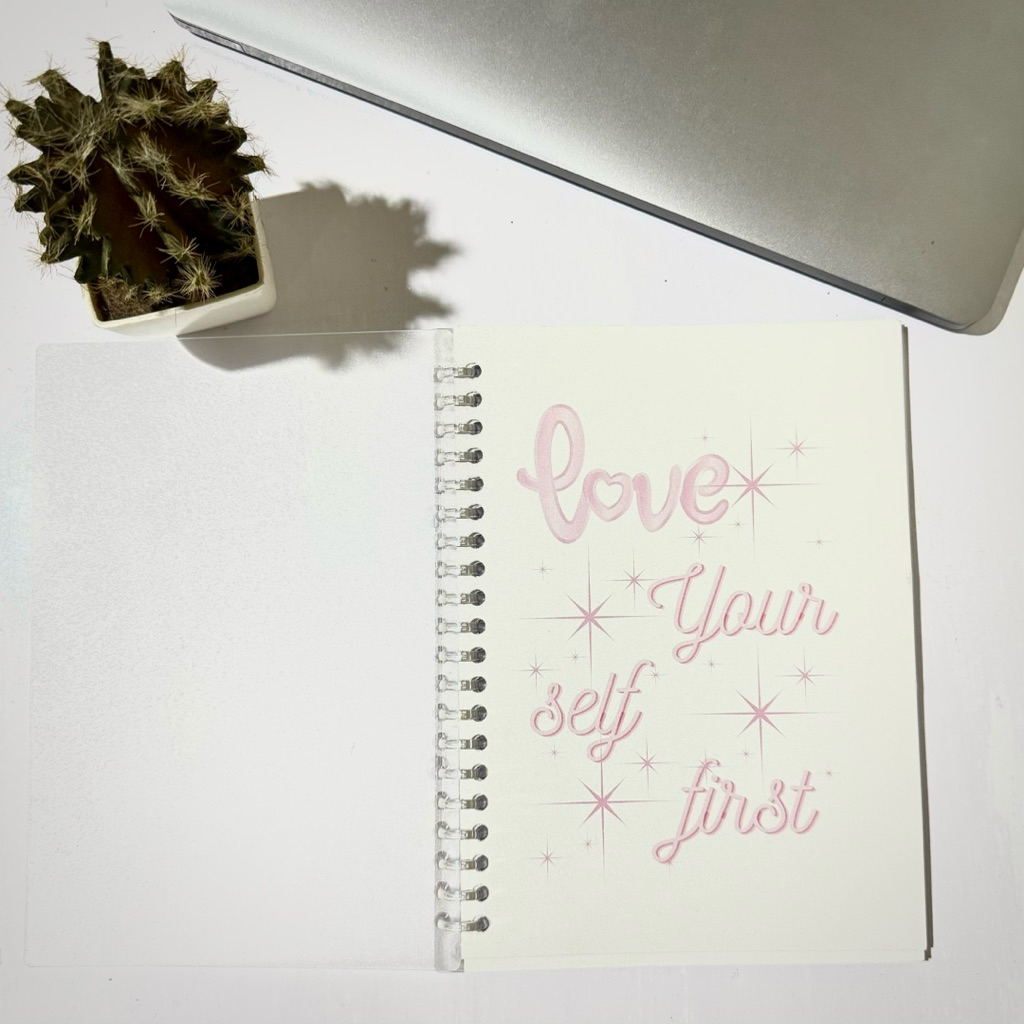 love
Your
self
first